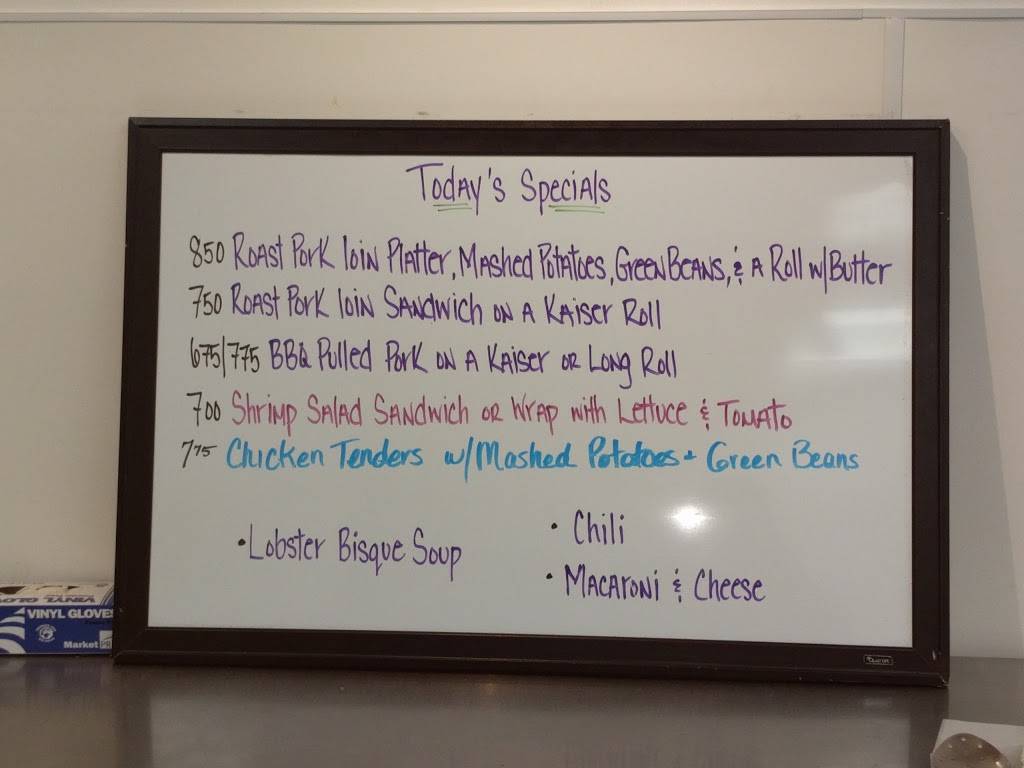 Today's Specials
850 Roast Pork loin Platter, Mashed Potatoes, Green Beans, & a Roll w/Butter
750 Roast Pork loin Sandwich on a Kaiser Roll
675/775 BBQ Pulled Pork on a Kaiser or Long Roll
700 Shrimp Salad Sandwich or Wrap with Lettuce & Tomato
775 Chicken Tenders w/Mashed Potatoes + Green Beans
• Lobster Bisque Soup
• Chili
• Macaroni & Cheese
VINYL GLOVES
Market